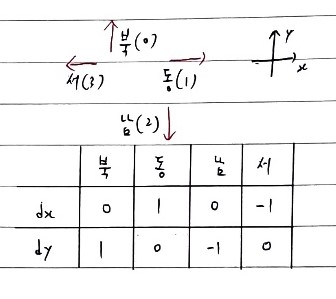 북(0)
서(3) 동(1)
y
x
남(2)
북 동 남 서
dx 0 1 0 -1
dy 1 0 -1 0